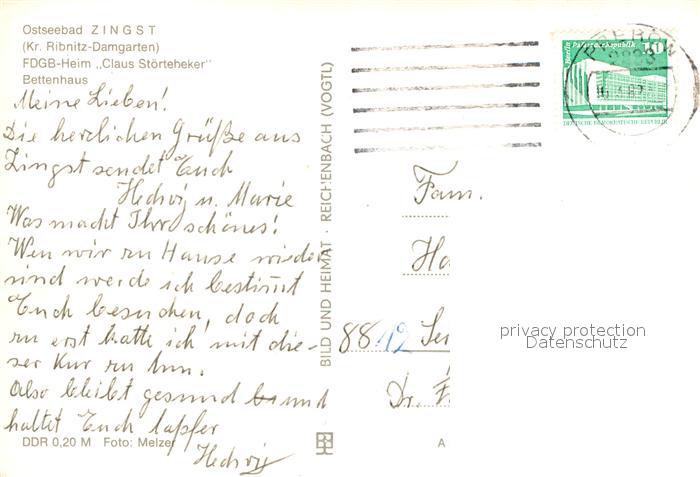 Ostseebad ZINGST
(Kr. Ribnitz-Damgarten)
FDGB-Heim „Claus Störteheker"
Bettenhaus
Meine Lieben!
Die herzlichen Grüße aus
Zingst sendet Euch
Hedwig u. Marie
Was macht Ihr schönes!
Wen wir zu Hause wieder
sind werde ich bestimt
Euch besuchen, doch
zu erst hatte ich mit die-
ser Kur zu tun.
Also bleibt gesund und
haltet Euch tapfer
Hedwig
DDR 0,20 M Foto: Melzer
BILD UND HEIMAT · REICHENBACH (VOGTL)
Berlin Palast der Republik 10
DEUTSCHE DEMOKRATISCHE REPUBLIK
PREROW
Fam.
Ha
8812 Sei
Dr. F
A
privacy protection
Datenschutz